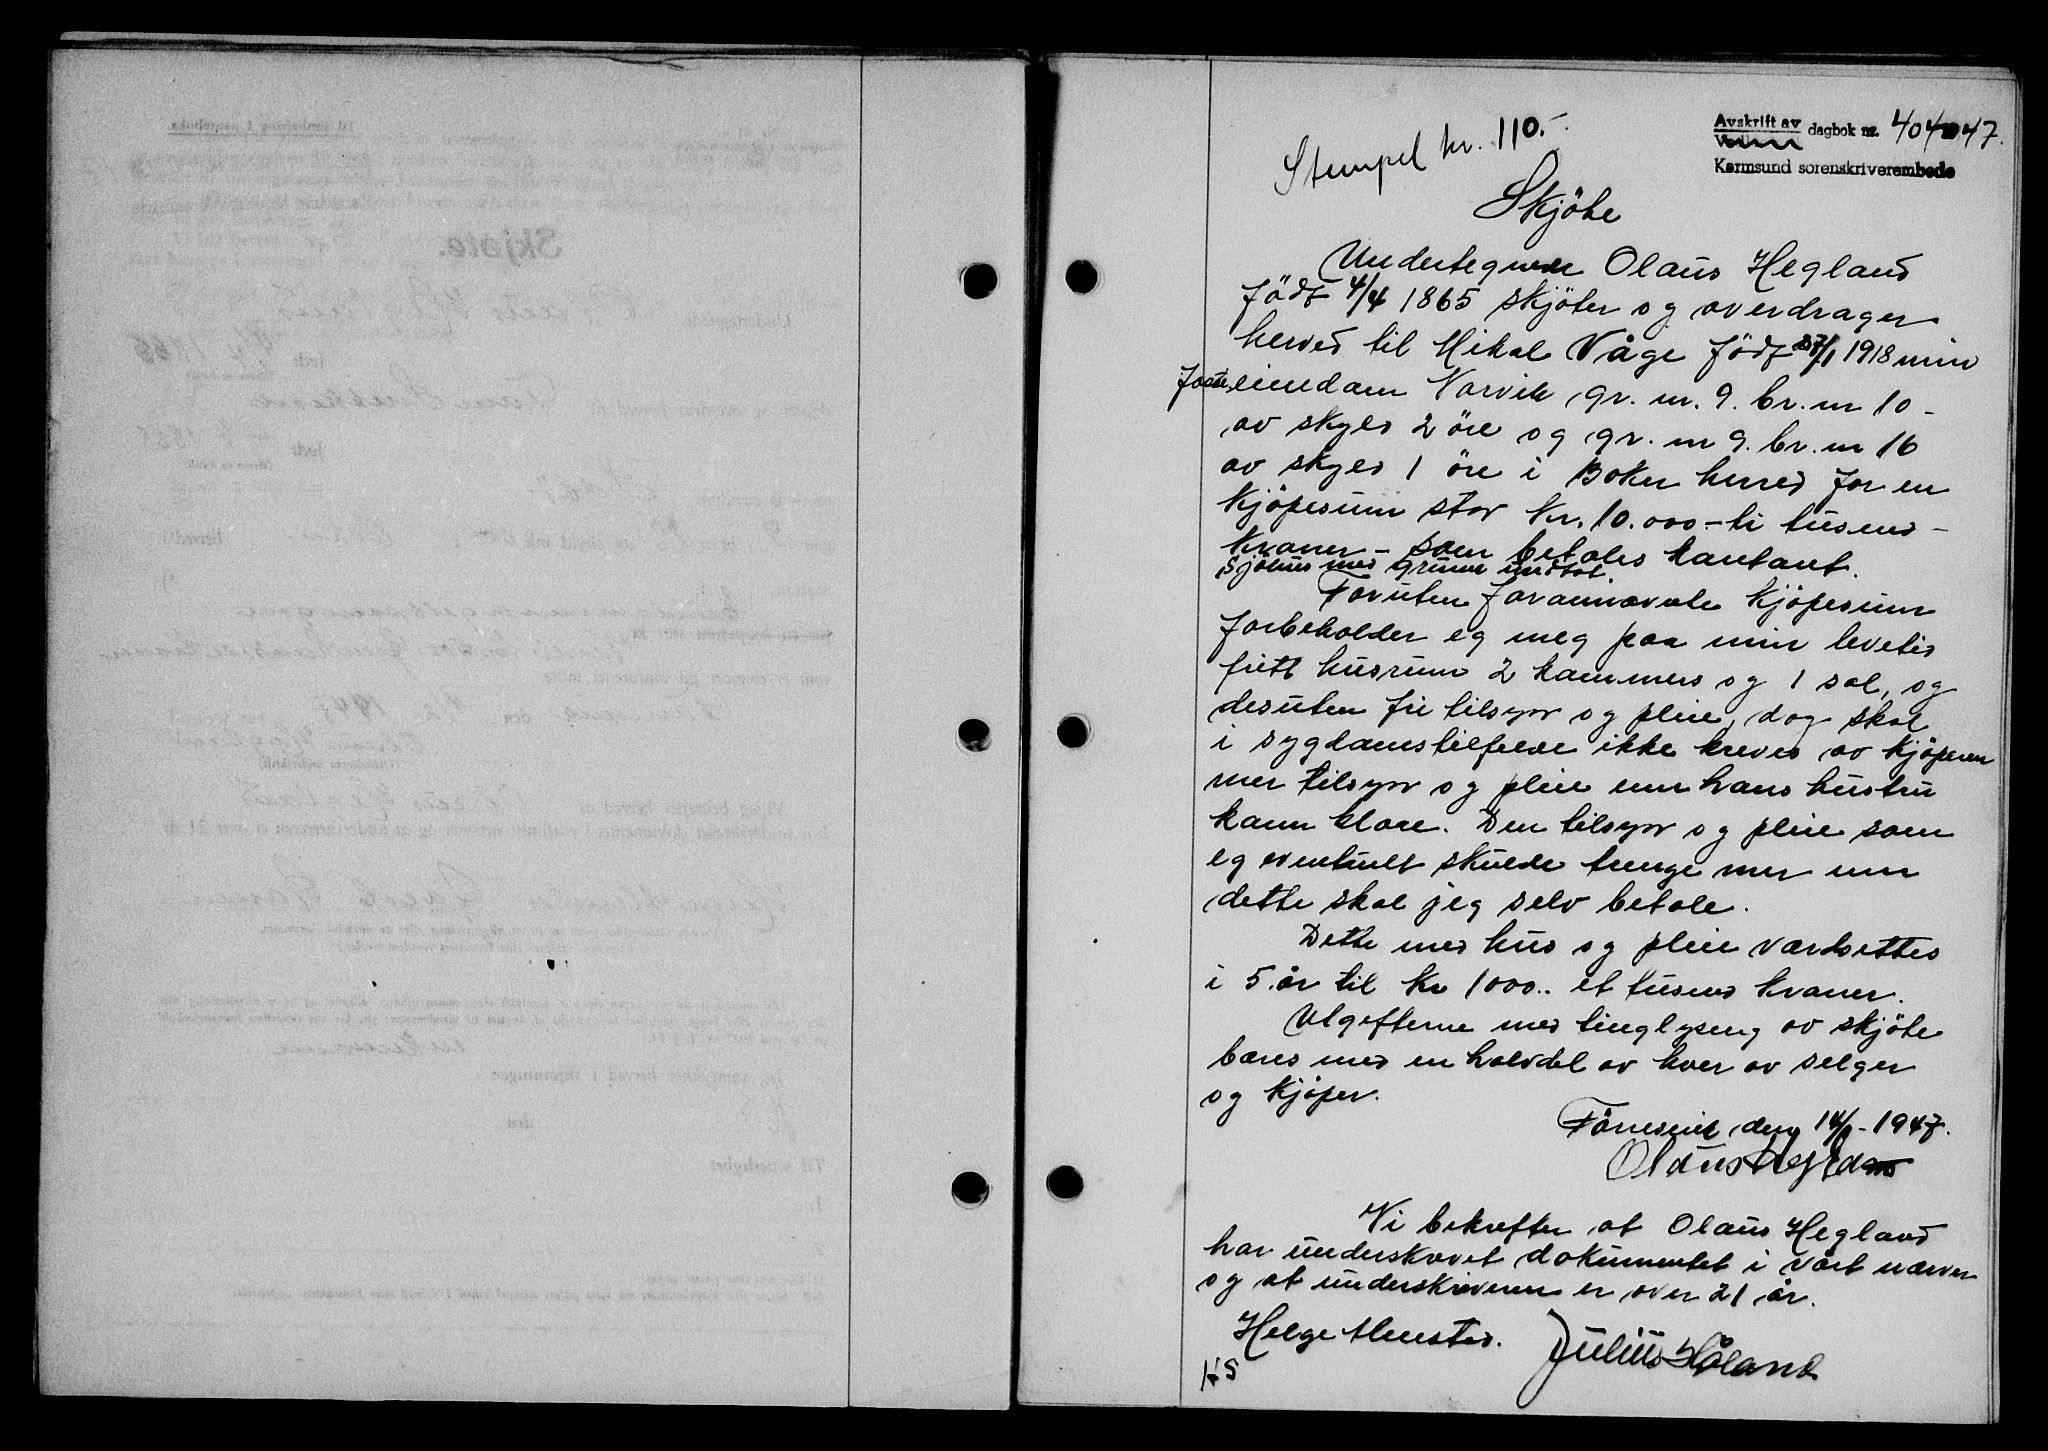 Avskrift av dagbok nr. 404 47.
Karmsund sorenskriverembede
Stempel kr. 110.-
Skjöte
Undertegnede Olaus Hegland
född 4/4 1865 skjöter og overdrager
herved til Mikal Våge född 27/1 1918 min
faste eiendom Norvik gr. nr. 9. br. nr 10 -
av skyld 2 öre og gr. nr 9. br. nr 16
av skyld 1 öre i Bokn herred for en
Kjöpesum stor Kr. 10.000 - ti tusend -
Kroner - som betales kontant.
Sjöhus med grunn undtat.
Foruten forannevnte Kjöpesum
forbeholder eg meg paa min levetid
fritt husrum 2 kammers og 1 sal, og
desuten fri tilsyn og pleie, dog skal
i sygdomstilfelde ikke kreves av Kjöperen
mer tilsyn og pleie enn hans hustru
kann klare. Den tilsyn og pleie som
eg eventuelt skulde trenge mer enn
dette skal jeg selv betale.
Dette med hus og pleie værdsettes
i 5 år til Kr 1000.. et tusend Kroner.
Utgifterne med tinglysing av skjöte
bæres med en halvdel av hver av selger
og Kjöper.
Förresvik den 14/1 - 1947.
Olaus Hegland
Vi bekrefter at Olaus Hegland
har underskrevet dokumentet i vårt nærver
og at underskriveren er over 21 år.
Helge Alnestad. Julius Håland
KS
Skjøte.